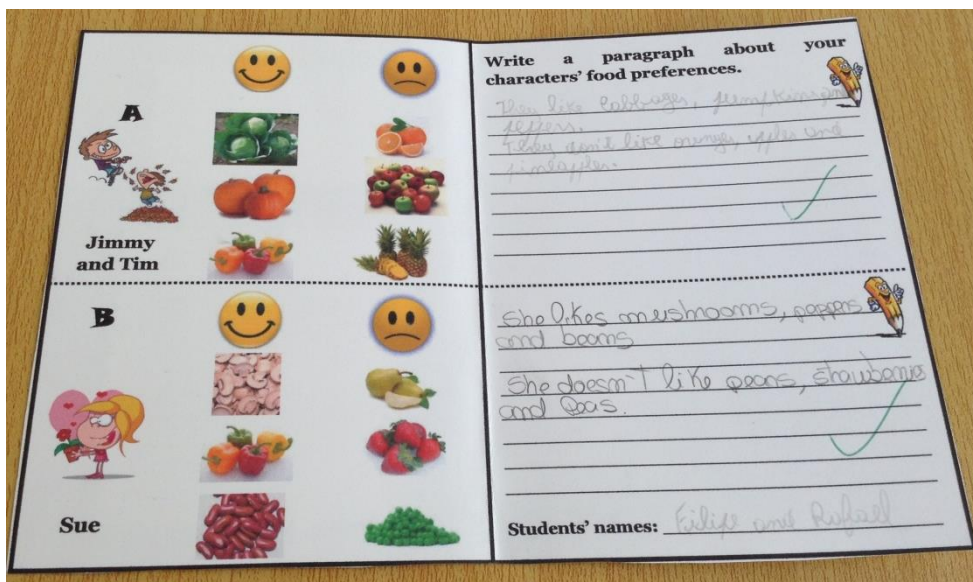 A
Jimmy
and Tim
Write a paragraph about your
characters' food preferences.
They like cabbages, pumpkins and
peppers.
They don't like oranges, apples and
pineapples.
B
Sue
She likes mushrooms, peppers
and beans
She doesn't like pears, strawberries
and peas.
Students' names: Filipe and Rafael